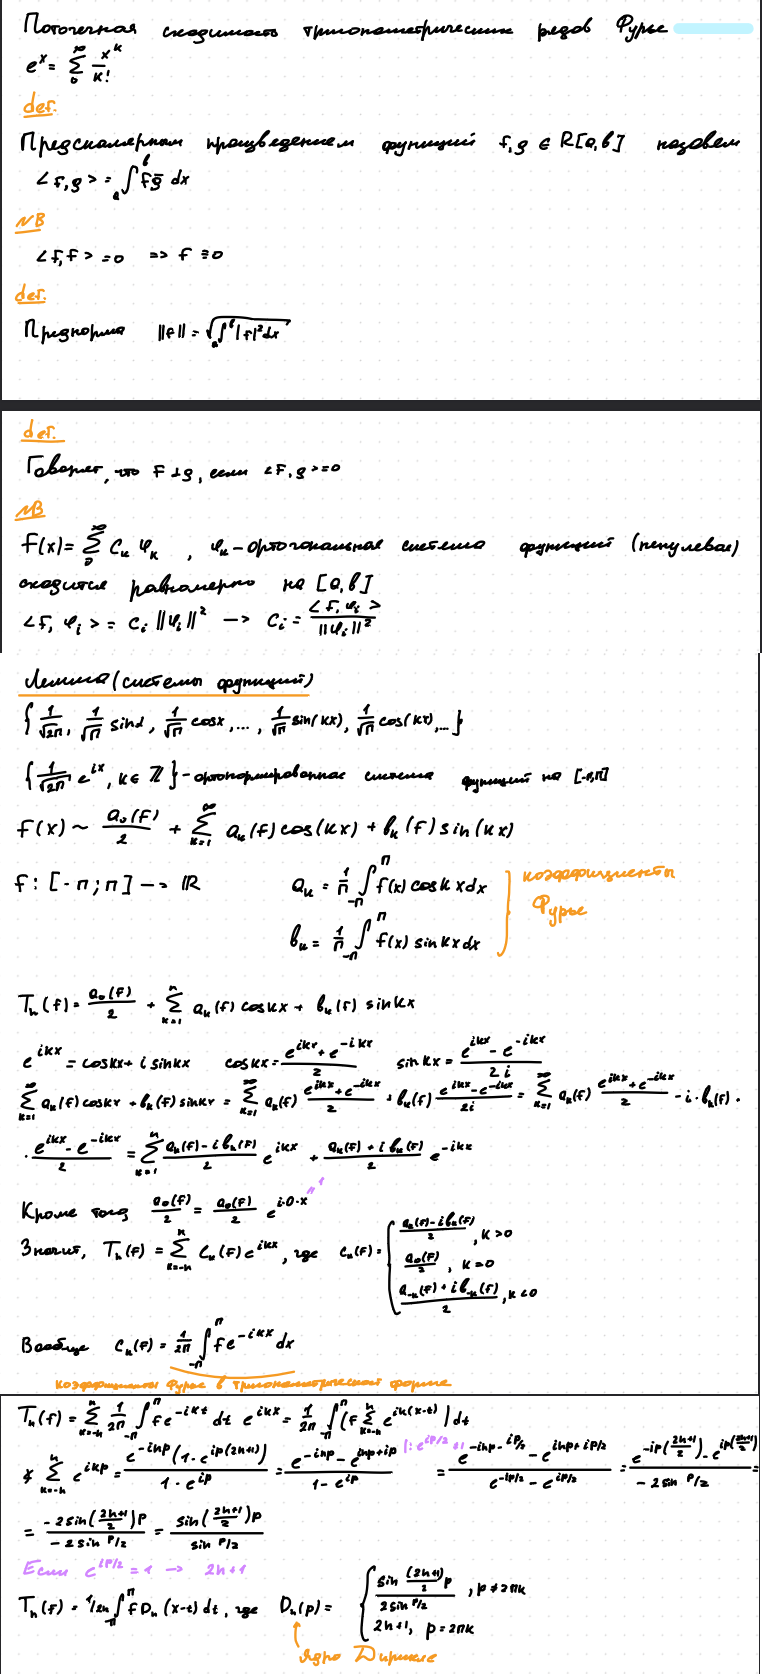 Поточечная сходимость тригонометрических рядов Фурье
e^x = ∑_0^∞ x^k/k!
def.
Предскалярным произведением функций f,g ∈ R[a,b] назовем
<f,g> = ∫_a^b f g̅ dx
NB
<f,f> = 0 => f ≡ 0
def.
Преднорма ||f|| = √(∫_a^b |f|² dx)
def.
Говорят, что f ⊥ g, если <f,g> = 0
NB
f(x) = ∑_0^∞ C_k φ_k , φ_k - ортогональная система функций (ненулевая)
сходится равномерно на [a,b]
<f, φ_i> = C_i ||φ_i||² —> C_i = <f, φ_i>/||φ_i||²
Лемма (системы функций)
{1/√2π, 1/√π sin x, 1/√π cos x, ..., 1/√π sin(kx), 1/√π cos(kx), ...}
{1/√2π e^{ix}, k ∈ ℤ} - ортонормированная система функций на [-π,π]
f(x) ~ a_0(f)/2 + ∑_{k=1}^∞ a_k(f) cos(kx) + b_k(f) sin(kx)
f: [-π; π] —> ℝ a_k = 1/π ∫_{-π}^π f(x) cos kx dx коэффициенты
b_k = 1/π ∫_{-π}^π f(x) sin kx dx Фурье
T_n(f) = a_0(f)/2 + ∑_{k=1}^n a_k(f) cos kx + b_k(f) sin kx
e^{ikx} = cos kx + i sin kx cos kx = (e^{ikx} + e^{-ikx})/2 sin kx = (e^{ikx} - e^{-ikx})/2i
∑_{k=1}^∞ a_k(f) cos kx + b_k(f) sin kx = ∑_{k=1}^∞ a_k(f) (e^{ikx} + e^{-ikx})/2 + b_k(f) (e^{ikx} - e^{-ikx})/2i = ∑_{k=1}^∞ a_k(f) (e^{ikx} + e^{-ikx})/2 - i · b_k(f) ·
· (e^{ikx} - e^{-ikx})/2 = ∑_{k=1}^n (a_k(f) - i b_k(f))/2 e^{ikx} + (a_k(f) + i b_k(f))/2 e^{-ikx}
Кроме того a_0(f)/2 = a_0(f)/2 e^{i·0·x} "1
Значит, T_n(f) = ∑_{k=-n}^n C_k(f) e^{ikx}, где C_k(f) = { (a_k(f) - i b_k(f))/2, k > 0
a_0(f)/2, k = 0
(a_{-k}(f) + i b_{-k}(f))/2, k < 0
Вообще C_k(f) = 1/2π ∫_{-π}^π f e^{-ikx} dx
коэффициенты Фурье в тригонометрической форме
T_n(f) = ∑_{k=-n}^n 1/2π ∫_{-π}^π f e^{-ikt} dt e^{ikx} = 1/2π ∫_{-π}^π (f ∑_{k=-n}^n e^{ik(x-t)}) dt
* ∑_{k=-n}^n e^{ikp} = e^{-inp}(1 - e^{ip(2n+1)})/(1 - e^{ip}) = (e^{-inp} - e^{inp+ip})/(1 - e^{ip}) |: e^{ip/2} ≠ 1 = (e^{-inp - ip/2} - e^{inp + ip/2})/(e^{-ip/2} - e^{ip/2}) = (e^{-ip((2n+1)/2)} - e^{ip((2n+1)/2)})/(-2 sin p/2) =
= -2 sin((2n+1)/2)p/(-2 sin p/2) = sin((2n+1)/2)p/(sin p/2)
Если e^{ip/2} = 1 —> 2n+1
T_n(f) = 1/2π ∫_{-π}^π f D_n(x-t) dt, где D_n(p) = { sin((2n+1)/2)p/(2 sin p/2), p ≠ 2πk
2n+1, p = 2πk
Ядро Дирихле